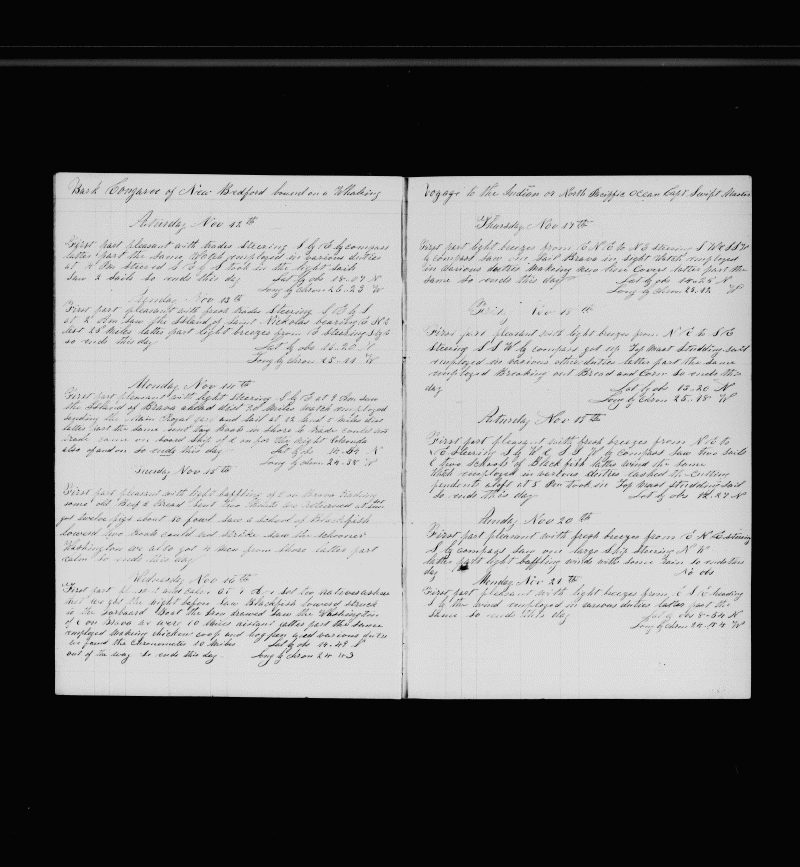 Bark Congaree of New Bedford bound on a Whaling
Saturday Nov 12th
First part pleasant with trades Steering S by E by compass
latter part the same Watch employed in various duties
at 4 Pm Steered S E by S took in the light sails
Saw 2 sails so ends this day Lat by obs 18-07 N
Long by Chron 26-23 W
Sunday Nov 13th
First part pleasant with fresh trades Steering S E by S
at 2 Am Saw the Island of Saint Nicholas bearing
dist 25 Miles latter part light breezes from E Steering S by E
so ends this day Lat by obs
Long by Chron 25-11 W
Monday Nov 14th
First part pleasant with light steering S by E at 9 Am saw
the Island of Brava ahead dist 20 Miles Watch employed
sending the Main Royal yar and sail at 12 Land 5 miles dist
latter part the same sent two boats in shore to trade could not
trade came on board Ship of & on for the night
also of and on so ends this day Lat by obs N
Long by Chron 24-58 W
Tuesday Nov 15th
First part pleasant with light baffling of & on Brava trading
some old Beef & Bread Sent two Boats in returned at Sun
got twelve pigs about 40 fowl Saw a school of Blackfish
lowerd two boats could not strike Saw the schooner
Washington we also got 4 men from shore latter part
calm so ends this day
Wednesday Nov 16th
First part pleasant and calm
that we got the night before Saw Blackfish lowerd struck
in the Larboard Boat the Iron drawed Saw the Washington
of & on Brava we were 10 Miles distant latter part the same
employed Making chicken coop and hog pen and various duties
we found the Chronometer 10 Miles Lat by obs 14-49
out of the way So ends this day Long by Chron 24 43
Voyage to the Indian or North Pacific Ocean Capt Swift Master
Thursday Nov 17th
First part light breezes from E N E to N E Steering S W & S S W
by compass Saw one Sail Brava in sight Watch employed
in various duties Making new line Covers latter part the
same So ends this day Lat by obs N
Long by Chron W
Friday Nov 18th
First part pleasant with light breezes from N E to S E
steering S S W by compass got up Top Mast Studding sail
employed in various other duties latter part the same
employed Breaking out Bread and Corn So ends this
day Lat by obs 13-26 N
Long by Chron 25-18 W
Saturday Nov 19th
First part pleasant with fresh breezes from N E to
E Steering S by W & S S W by compass Saw two sails
& two schools of Blackfish latter wind the same
Watch employed in various duties lashed the Cutting
pendants aloft at 5 Pm took in Top Mast Studding sail
so ends this day Lat by obs 12-27 N
Sunday Nov 20th
First part pleasant with fresh breezes from E N E steering
S by compass Saw one large ship steering N W
latter part light baffling winds with some rain so ends this
day No obs
Monday Nov 21st
First part pleasant with light breezes from E S E heading
S by the wind employed in various duties latter part the
same so ends this day Lat by obs 8-54 N
Long by Chron W